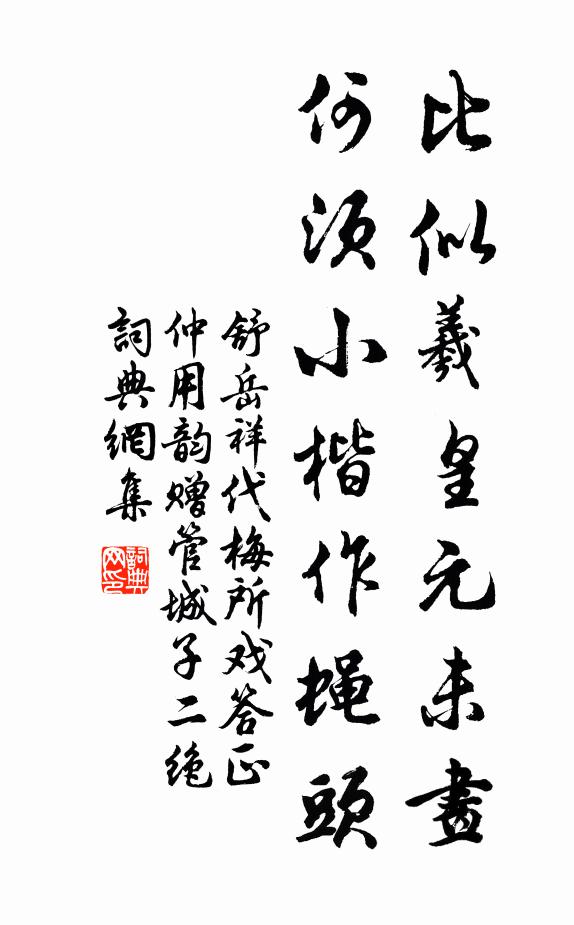 比似羲皇元未畫
何須小楷作蝇頭
舒岳祥代梅所戏答正
仲用韵赠管城子二绝
詞典網集
詞典网印